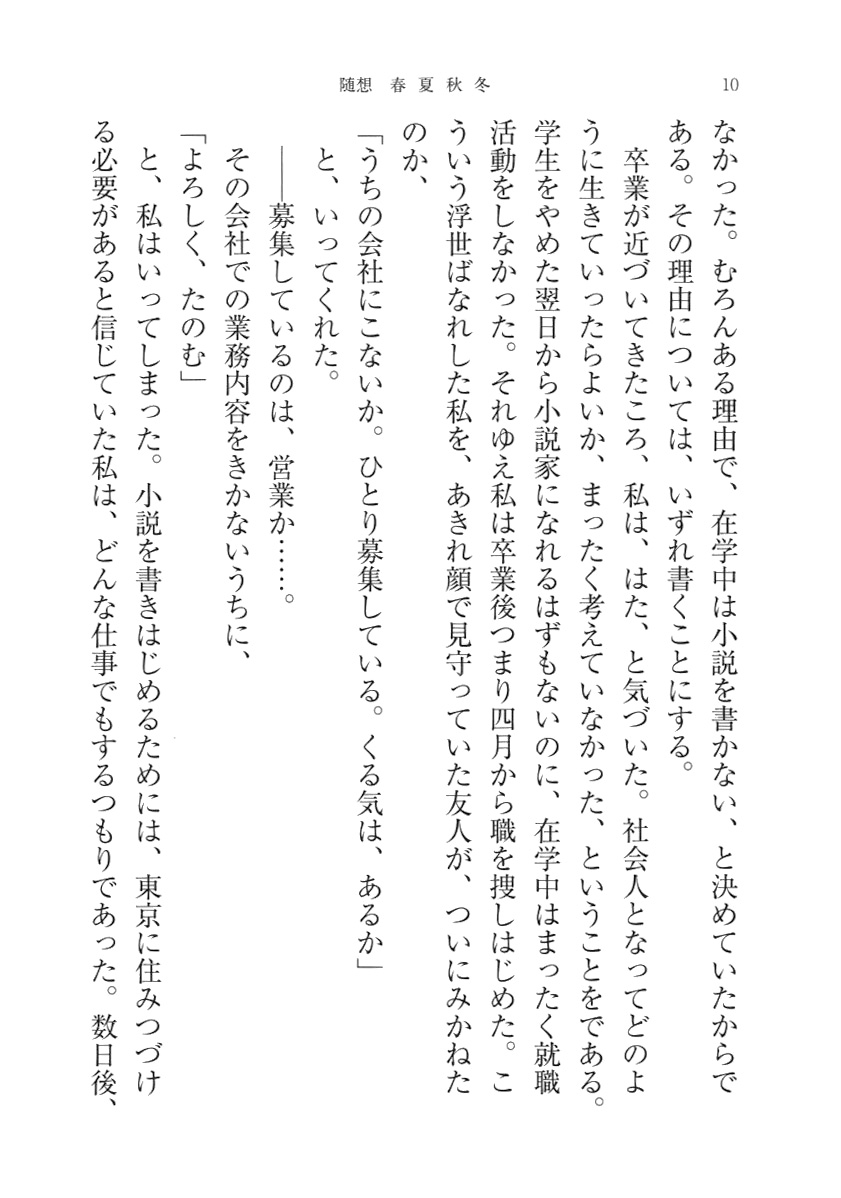 随想 春夏秋冬
10
なかった。むろんある理由で、在学中は小説を書かない、と決めていたからで
ある。その理由については、いずれ書くことにする。
　卒業が近づいてきたころ、私は、はた、と気づいた。社会人となってどのよ
うに生きていったらよいか、まったく考えていなかった、ということをである。
学生をやめた翌日から小説家になれるはずもないのに、在学中はまったく就職
活動をしなかった。それゆえ私は卒業後つまり四月から職を捜しはじめた。こ
ういう浮世ばなれした私を、あきれ顔で見守っていた友人が、ついにみかねた
のか、
「うちの会社にこないか。ひとり募集している。くる気は、あるか」
　と、いってくれた。
　――募集しているのは、営業か……。
　その会社での業務内容をきかないうちに、
「よろしく、たのむ」
　と、私はいってしまった。小説を書きはじめるためには、東京に住みつづけ
る必要があると信じていた私は、どんな仕事でもするつもりであった。数日後、